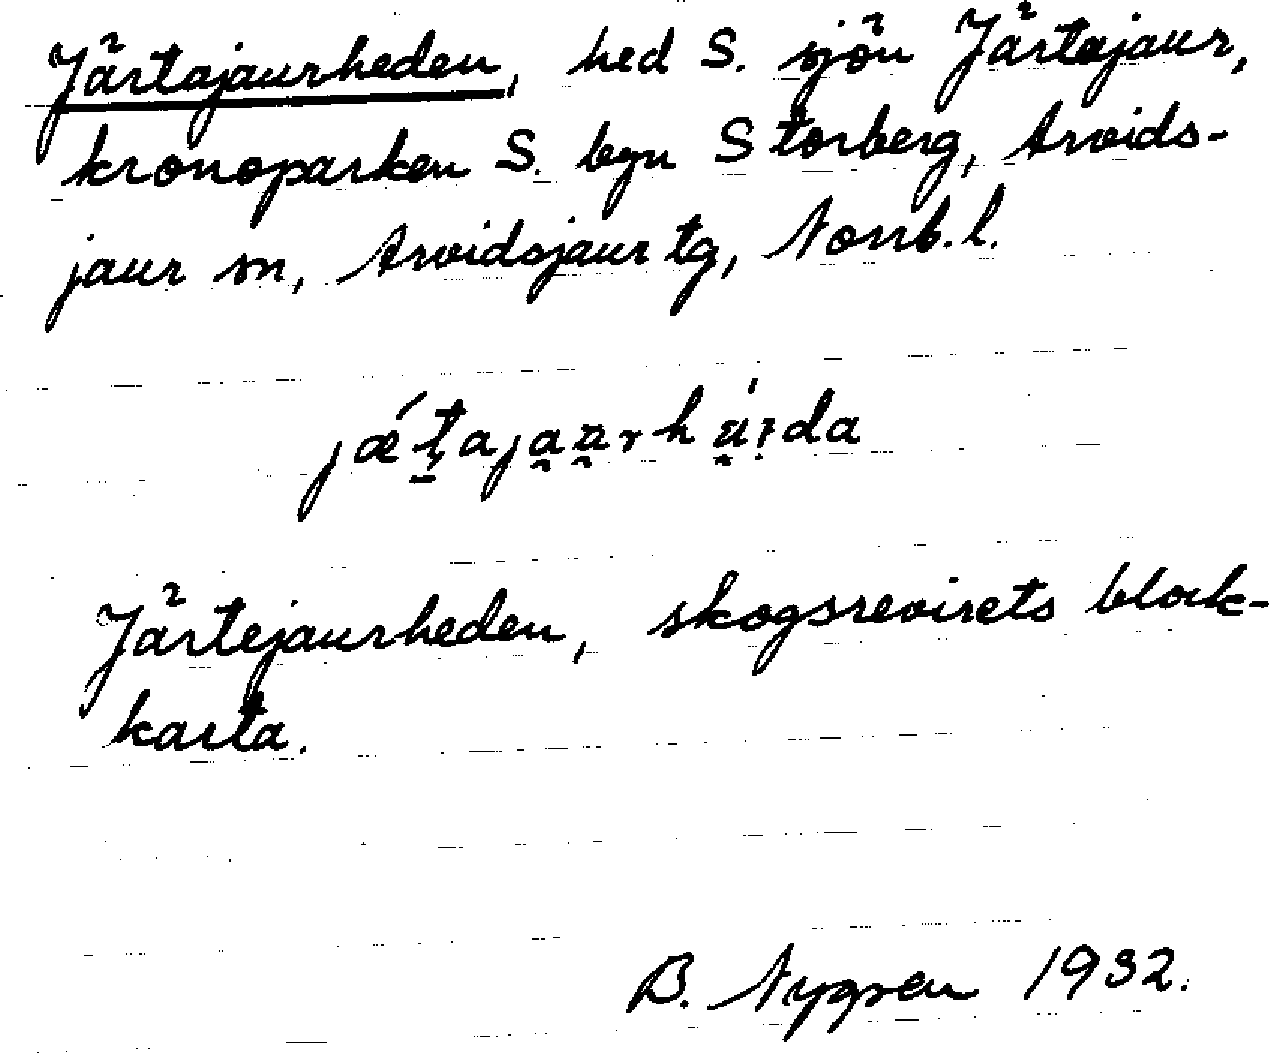 Järtajaurheden, hed S. sjön Järtajaur,
kronoparken S. byn Storberg, Arvids-
jaur sn, Arvidsjaur tg, Norrb. l.
Järtejaurheden, skogsrevirets block-
karta.
B. Nygren 1932.